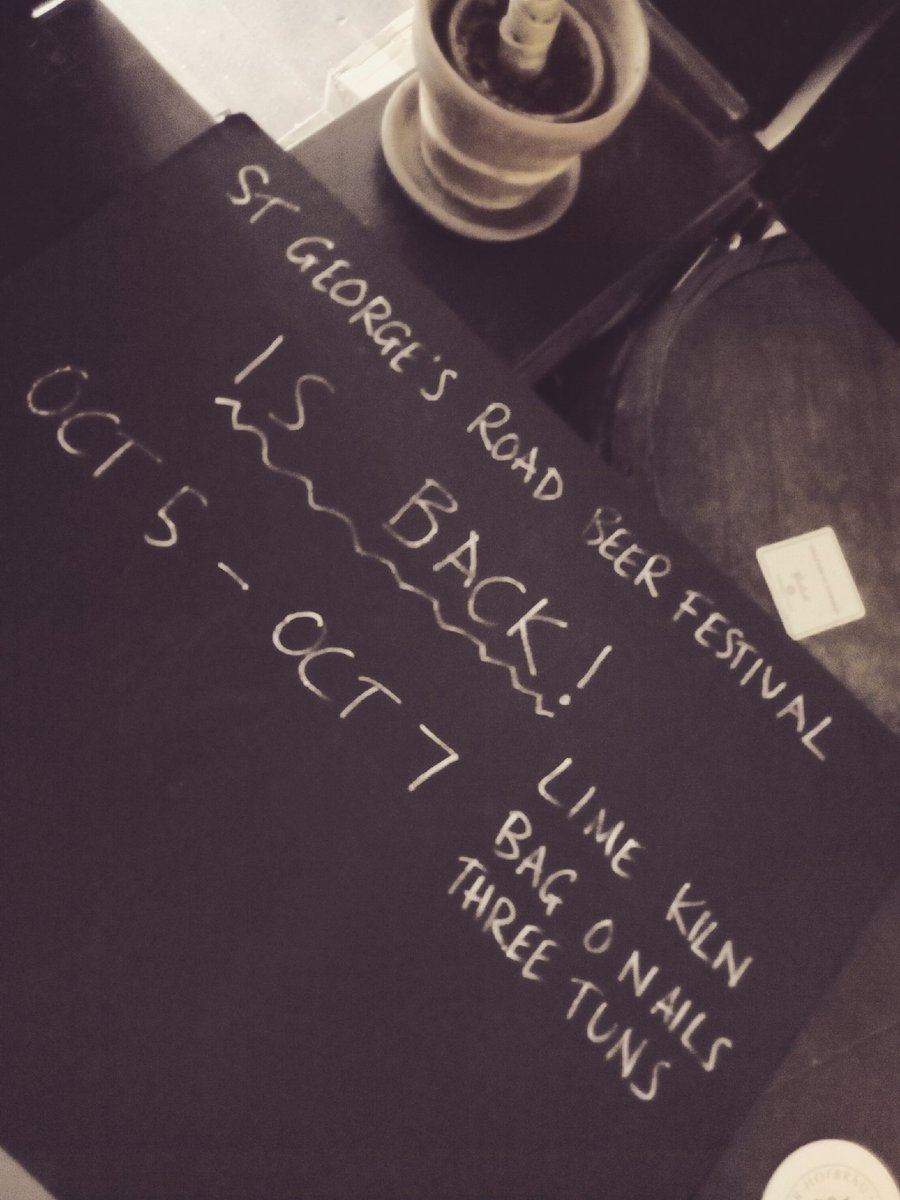 ST GEORGE'S ROAD BEER FESTIVAL
IS BACK!
OCT 5 - OCT 7
LIME KILN
BAG O NAILS
THREE TUNS